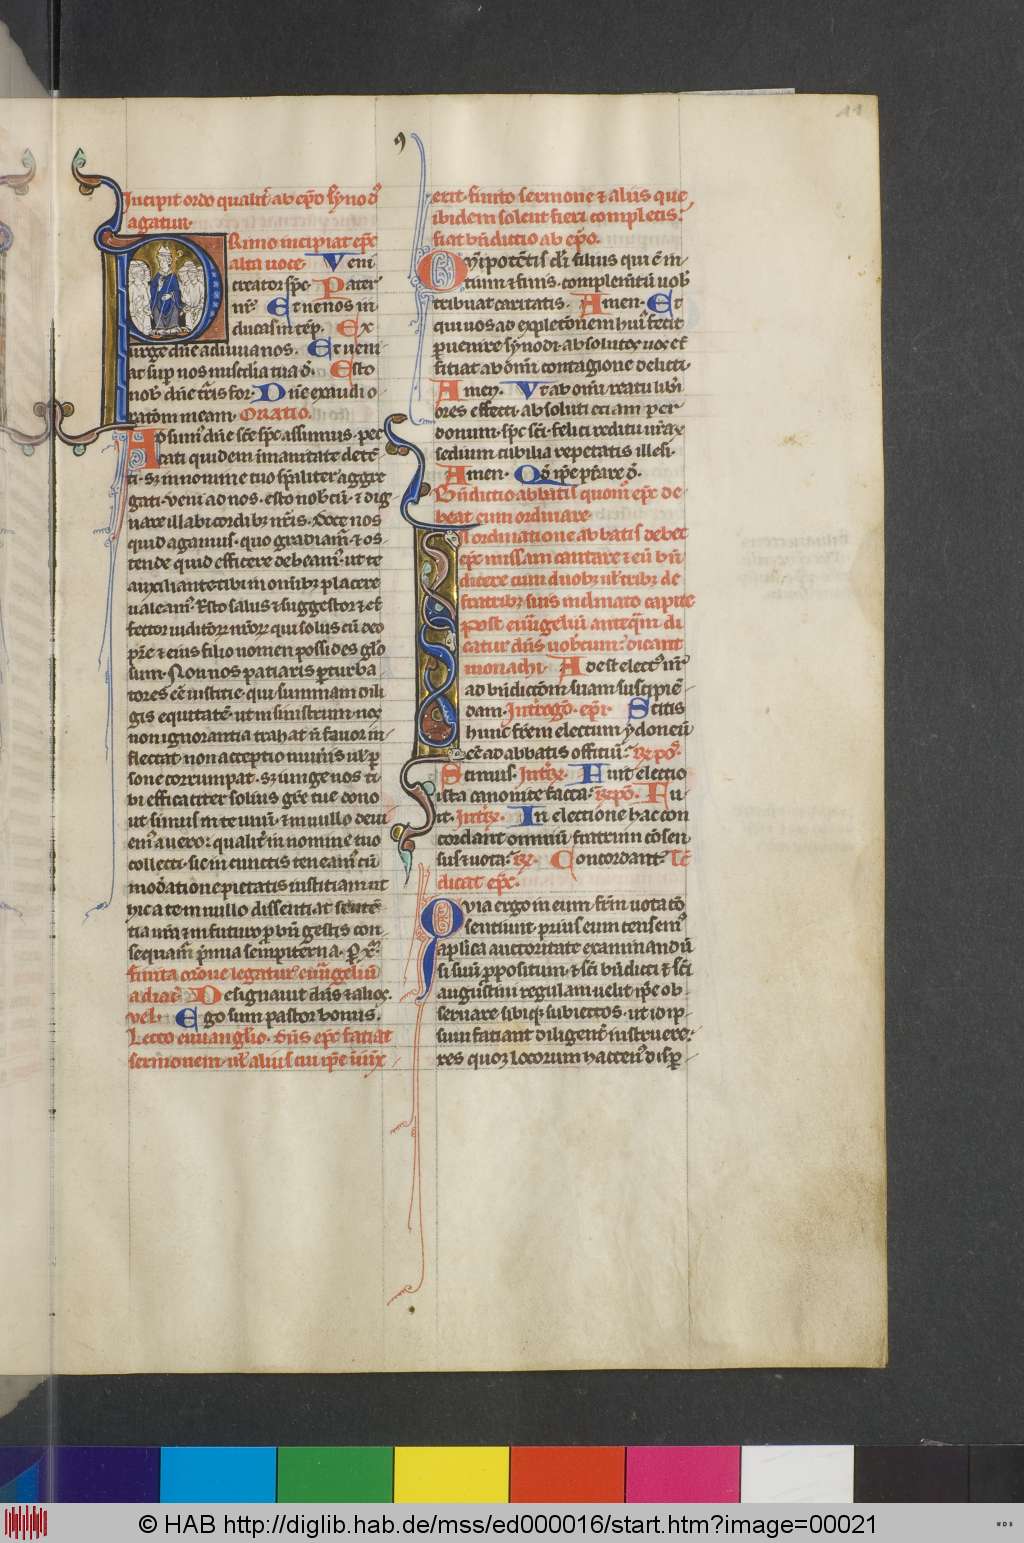 11
Incipit ordo qualit᷒ ab ep̄o synod᷒
agatur.
Primo incipiat ep̄c
alta voce. Veni
creator sp̄c. Pater
nr̄. Et ne nos in
ducas in tēp. Ex
urge dn̄e adiuua nos. Et veni
at sup nos misc̄dia tua d̄. Esto
nob̄ dn̄e t᷒ris for. Dn̄e exaudi o
ratōm meam. Oratio.
Adsum᷒ dn̄e sc̄e sp̄c assumus. pec
cati quidem īmanitate detē
ti. sȝ in nomine tuo sp̄aliter aggre
gati. veni ad nos. esto nob̄cū. ⁊ dig
nare illabi cordibȝ nr̄is. doce nos
quid agamus. quo gradiam̄. ⁊ os
tende quid efficere debeam᷒. ut te
auxiliante tibi in om̄ibȝ placere
ualeam᷒. Esto salus ⁊ suggestor ⁊ ef
fector iudicioꝝ nr̄oꝝ qui solus cū deo
pr̄e ⁊ eius filio nomen possides glo
sum. Non nos patiaris ꝑturba
tores eē iustitie. qui summam dili
gis equitatē. ut in sinistrum nos
non ignorantia trahat n̄ fauor in
flectat. non acceptio mun̄is ul̄ ꝑ
sone corrumpat. sȝ iunge nos ti
bi efficaciter solius gr̄e tue dono
ut simus in te unū. ⁊ in nullo deui
em᷒ a uero. qualit̄ in nomine tuo
collecti. sic in cunctis teneam᷒ cū
mod̄atione pietatis iustitiam ut
hic a te in nullo dissentiat sentē
tia nr̄a ⁊ in futuro ꝓ bn̄ gestis con
sequam̄ p̄mia sēmpiterna. ꝑ xr̄.
finita or̄one legatur eu̅ugeliū
a diac̄. Designauit dn̄s ⁊ alios.
vel. Ego sum pastor bonus.
Lecto euuanglio. dn̄s ep̄c faciat
sermonem. ul̄ alius cui ip̄e iūx
erit. finito sermone ⁊ aliis que
ibidem solent fieri completis.
fiat bn̄dictio ab ep̄o.
Om̄ipotētis di filius qui ē in
itium ⁊ finis. complem̄tū uob̄
tribuat caritatis. Amen. Et
qui uos ad expletōnem hui᷒ fecit
ꝑuenire synodi. absolutos uos ef
ficiat ab om̄i contagione delicti.
Amen. Vt ab om̄i reatu lib̄i
ores effecti. absoluti eciam per
donum. sp̄c sc̄i. felici reditu ur̄ar
sedium cubilia repetatis illesi.
Amen. Qd̄ ip̄e p̄tare d̄.
Bn̄dictio abbatis quom̄ ep̄c de
beat eum ordinare.
In ordinatione abbatis debet
ep̄c missam cantare ⁊ eū bn̄
dicere cum duobȝ ul̄ tribȝ de
fratribȝ suis inclinato capite
Post euūgeliū anteq̄m di
catur dn̄s uob̄cum. dicant
monachi. Adest elect᷒ nr̄
ad bn̄dictōm suam suscipiē
dam. Int̄rogō. ep̄i. Scitis
hunc fr̄em electum ydoneū
eē ad abbatis offitiū. ℞ pō.
Scimus. Int̄rx. Fuit electio
ista canonice facta. ℞ pō. Fu
it. Int̄rx. In electione hac con
cordant omnium fratrum cōsen
sus ⁊ uota. ℞. Concordant. Tē
dicat ep̄c.
Quia ergo in eum fr̄m uota cō
sentiunt. prius eum censem᷒
ap̄lica auctoritate examinandū
si suū ꝓpositum. ⁊ sc̄i bn̄dicti ⁊ sc̄i
augustini regulam uelit ip̄e ob
seruare sibiqȝ subiectos. ut id ip
sum faciant diligent᷒ instruere.
res quoqȝ locorum hacten᷒ disp̄
© HAB http://diglib.hab.de/mss/ed000016/start.htm?image=00021